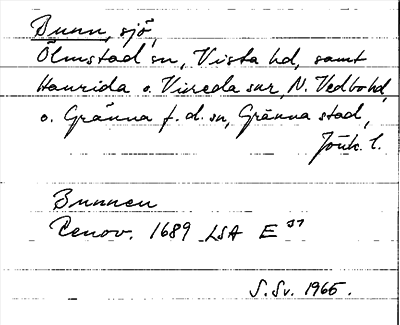 Bunn, sjö,
Ölmstad sn, Vista hd, samt
Haurida o. Vireda snr, N. Vedbo hd,
o. Gränna f. d. sn, Gränna stad,
Jönk. l.
Bunnen
Renov. 1689 LSA E
S. Sv. 1965.